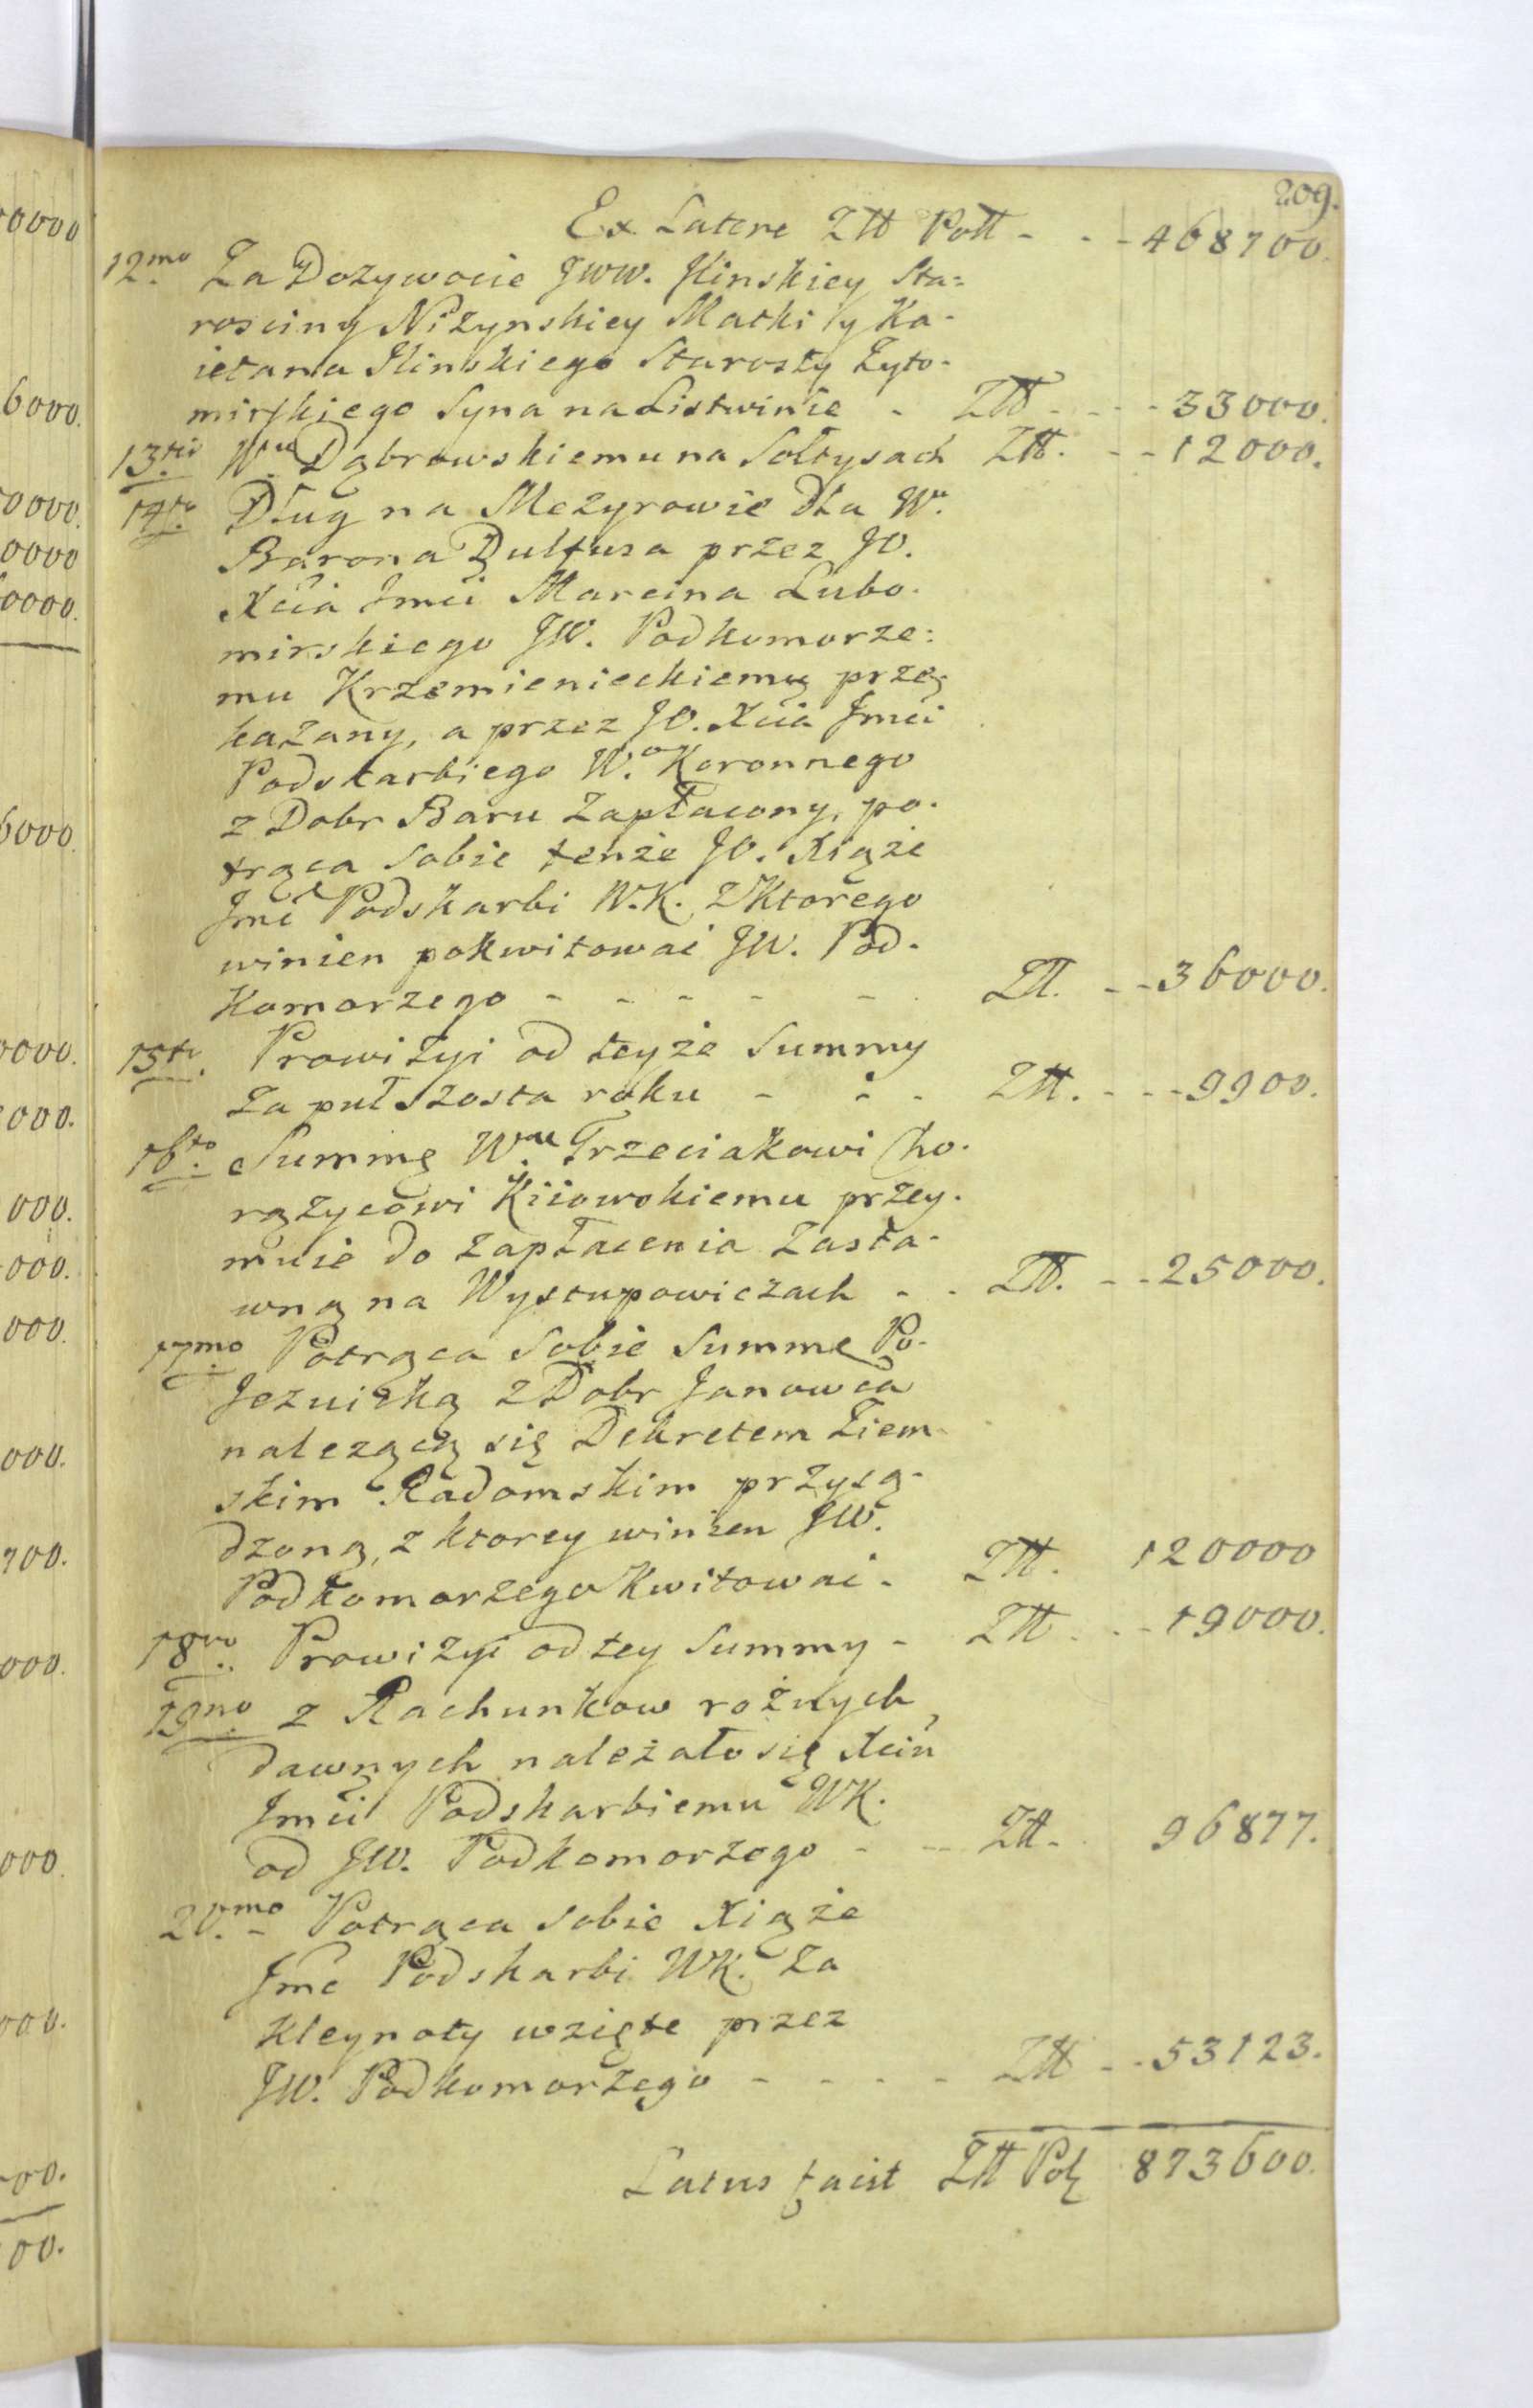 209.
Ex Latere Ztt Poll - - - 468700.
12mo. Za Dozywocie JWW. Ilinskiey Sta=
rosciny Niżynskiey Matki y Ka-
ietana Ilinskiego Starosty Zyto-
mirskiego Syna na Listwinie - Ztt - - - 33000.
13tio. Wmu Dąbrowskiemu na Sołtysach Ztt. - - 12000.
14to. Dług na Mezyrowie dla W.
Barona Zultusa przez JO.
Xcia Jmci Marcina Lubo-
mirskiego JW. Podkomorze=
mu Krzemienieckiemu prze-
kazany, a przez JO. Xcia Jmci
Podskarbiego W.o Koronnego
z Dobr Baru Zapłacony, po-
trąca sobie tenże JO. Xiąże
Jmć Podskarbi W.K. z Ktorego
winien pokwitować JW. Pod-
Komorzego - - - - - - Ztt. - - 36000.
15to. Prowizyi od teyże Summy
za puł szosta roku - - - Ztt. - - - 9900.
16to. Summę Wmu Trzeciakowi Cho-
rążycowi Kiiowskiemu przey-
muie do zapłacenia Zasta-
wną na Wystupowiczach - - Ztt. - - 25000.
17mo. Potrąca Sobie Summę Po-
Jezuicką z Dobr Janowca
nalezącą się Dekretem Ziem-
skim Radomskim przysą-
dzoną, z ktorey winien JW.
Podkomorzego Kwitować - Ztt. 120000
18vo. Prowizyi od tey Summy - Ztt - - 19000.
19no. z Rachunkow rożnych
dawnych należało się Xciu
Jmci Podskarbiemu WK.
od JW. Podkomorzego - - Ztt - 96877.
20mo. - Potrąca sobie Xiąże
Jmć Podskarbi WK. za
Kleynoty wzięte przez
JW. Podkomorzego - - - - Ztt - - 53123.
Latus facit Ztt Pol 873600.
0000
6000.
0000.
0000
0000.
6000.
000.
000.
000.
000.
000.
000.
700.
000.
000
000.
00.
00.